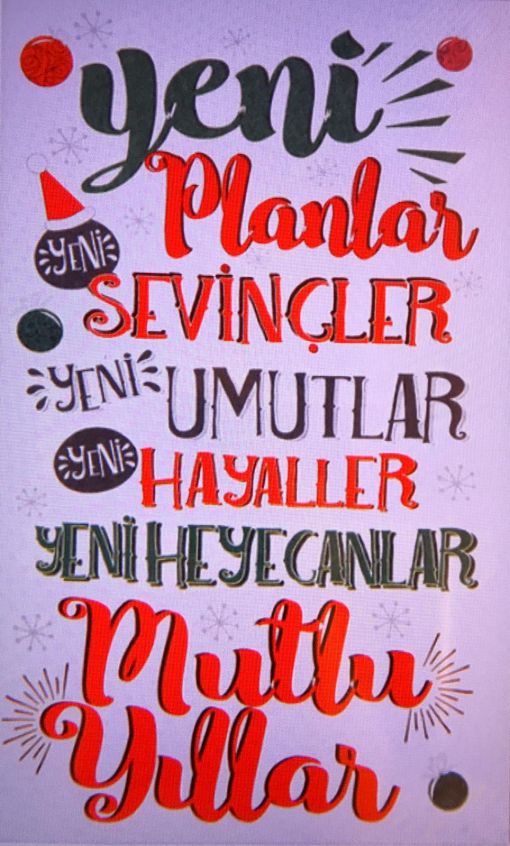 yeni
Planlar
YENİ
SEVİNÇLER
YENİ UMUTLAR
YENİ HAYALLER
YENİ HEYECANLAR
Mutlu
Yıllar